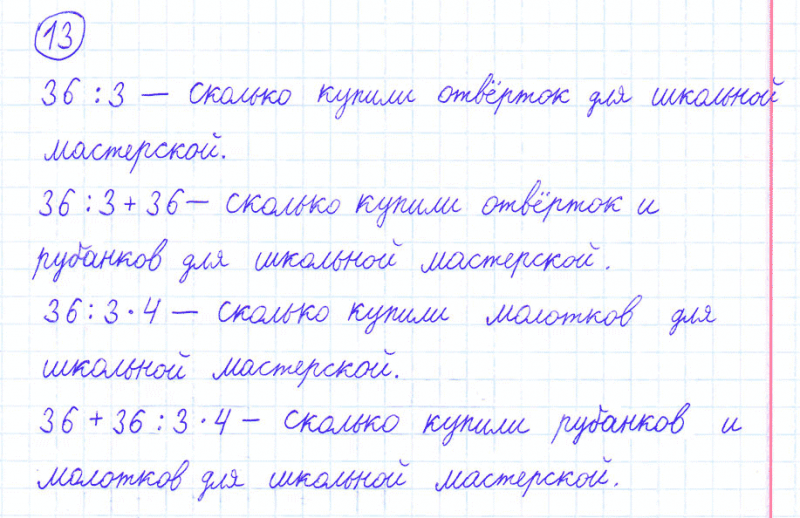 13
36 : 3 — сколько купили отвёрток для школьной
мастерской.
36 : 3 + 36 — сколько купили отвёрток и
рубанков для школьной мастерской.
36 : 3 · 4 — сколько купили молотков для
школьной мастерской.
36 + 36 : 3 · 4 — сколько купили рубанков и
молотков для школьной мастерской.